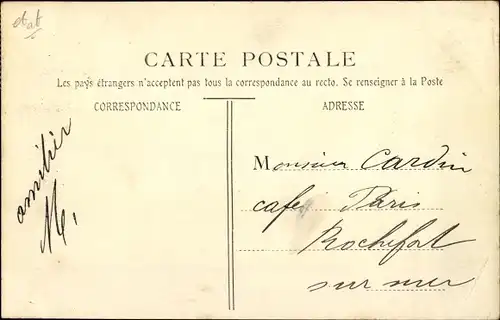 etat
CARTE POSTALE
Les pays étrangers n'acceptent pas tous la correspondance au recto. Se renseigner à la Poste
CORRESPONDANCE
ADRESSE
amitiés
M,
Monsieur Cardin
cafe Paris
Rochefort
sur mer